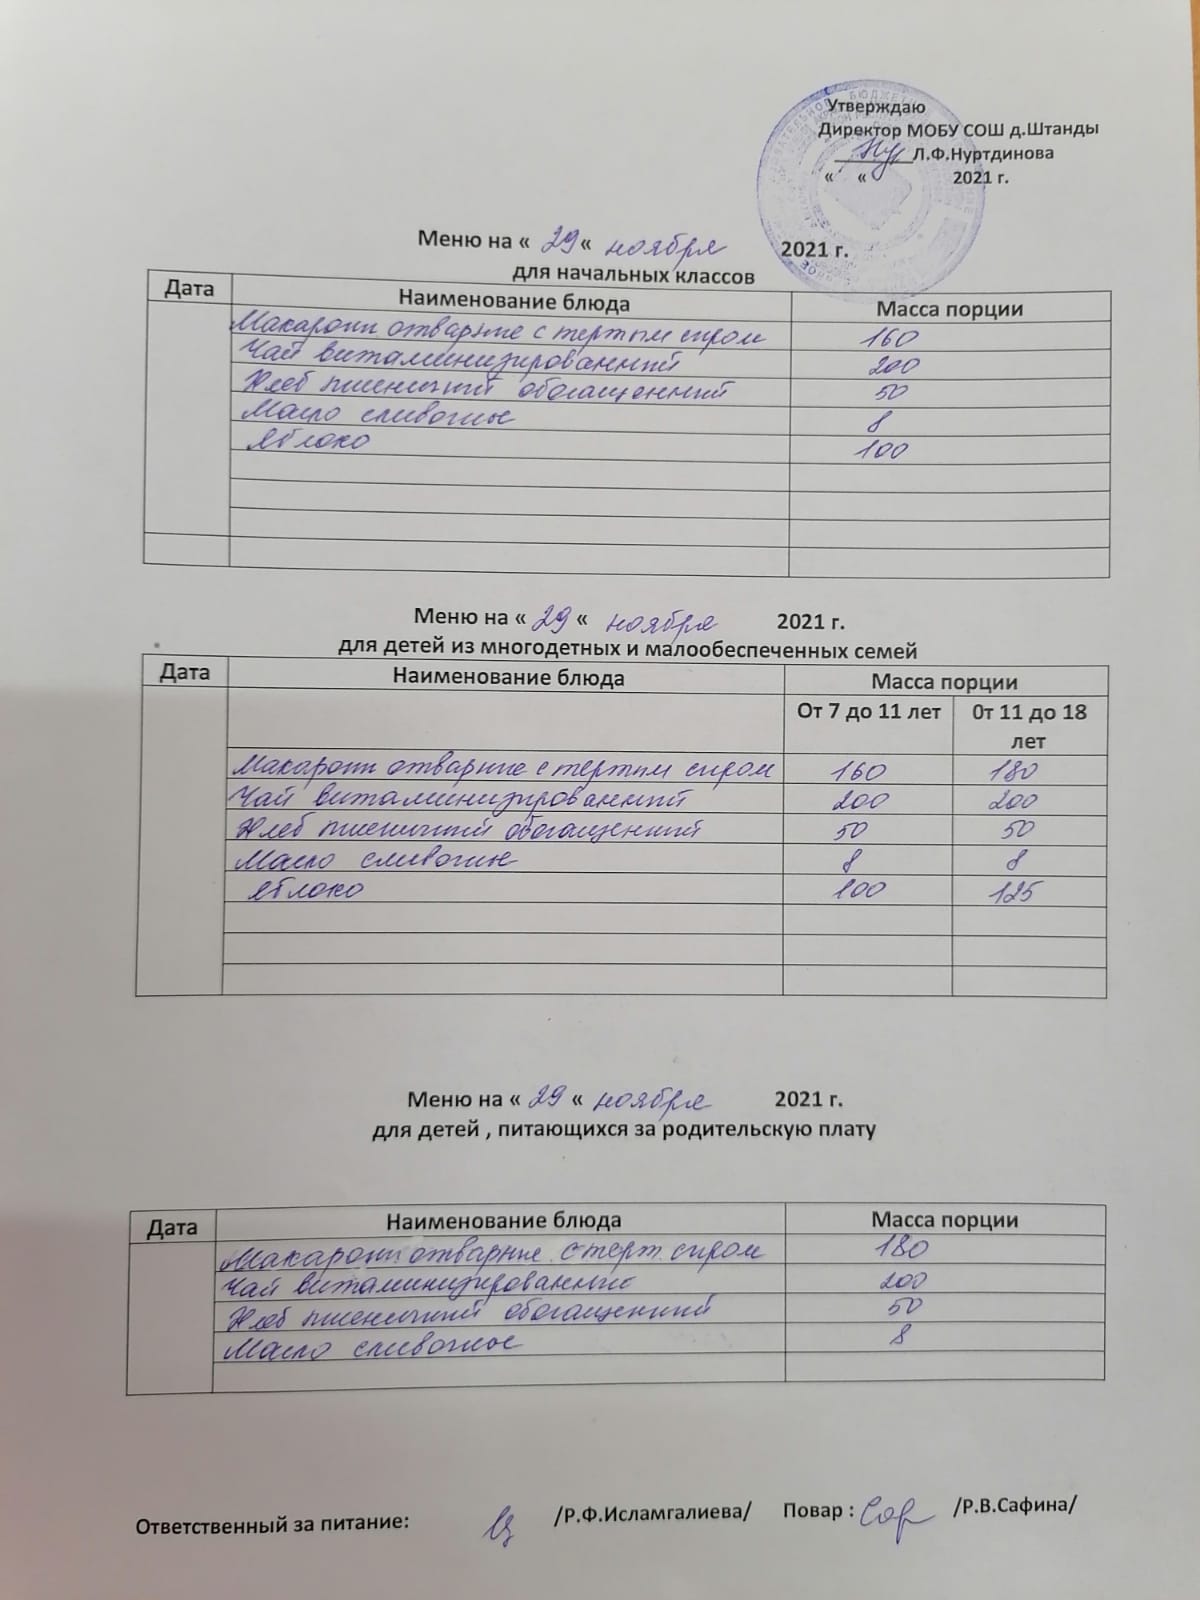 Утверждаю
Директор МОБУ СОШ д.Штанды
Л.Ф.Нуртдинова
« « 2021 г.
Меню на « 29 « ноября 2021 г.
для начальных классов
Дата Наименование блюда Масса порции
Макароны отварные с тертым сыром 160
Чай витаминизированный 200
Хлеб пшеничный обогащенный 50
Масло сливочное 8
Яблоко 100
Меню на « 29 « ноября 2021 г.
для детей из многодетных и малообеспеченных семей
Дата Наименование блюда Масса порции
От 7 до 11 лет 0т 11 до 18
лет
Макароны отварные с тертым сыром 160 180
Чай витаминизированный 200 200
Хлеб пшеничный обогащенный 50 50
Масло сливочное 8 8
Яблоко 100 125
Меню на « 29 « ноября 2021 г.
для детей , питающихся за родительскую плату
Дата Наименование блюда Масса порции
Макароны отварные с терт. сыром 180
Чай витаминизированный 200
Хлеб пшеничный обогащенный 50
Масло сливочное 8
Ответственный за питание: /Р.Ф.Исламгалиева/ Повар : /Р.В.Сафина/